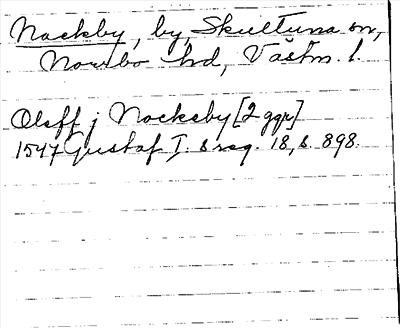 Nackby, by, Skultuna sn,
Norrbo hd, Västm. l.
Olaff j Nackaby [2 ggr]
1547 Gustaf I. s reg. 18, s. 898.